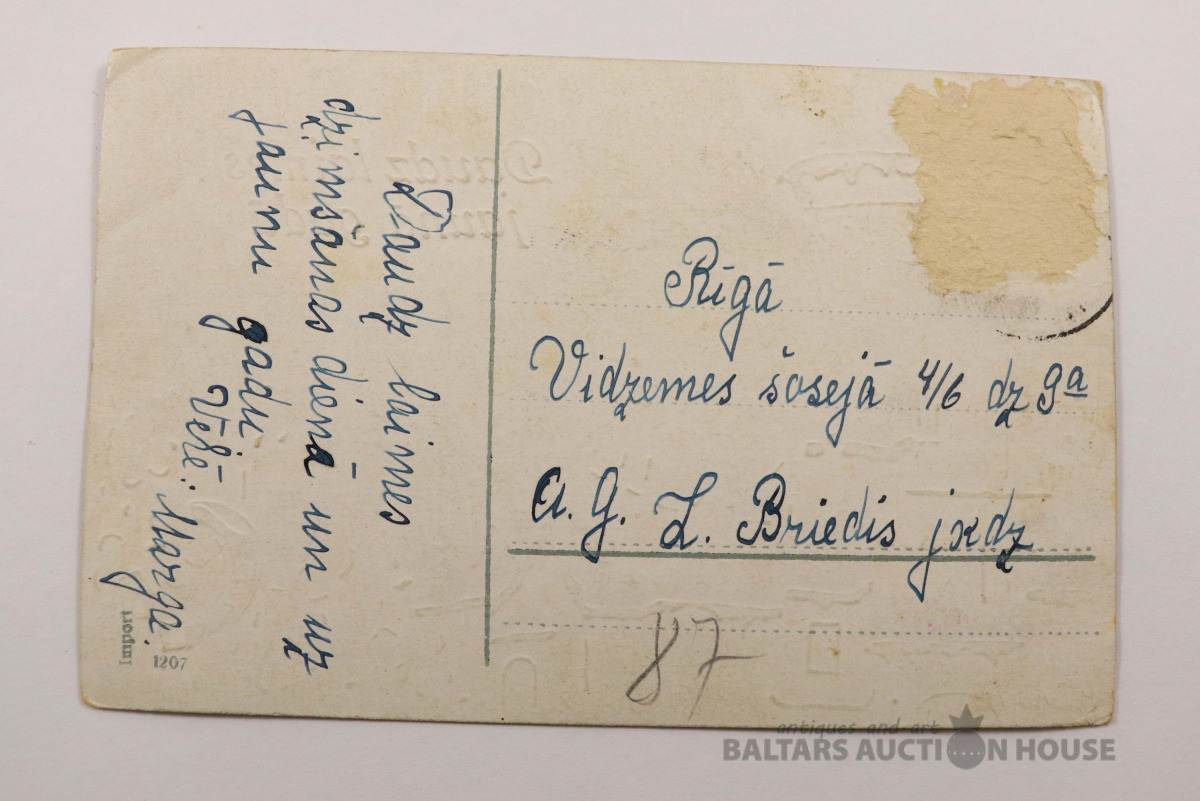 Daudz laimes
dzimšanas dienā un uz
jaunu gadu
Vēlē: Marga.
Rīgā
Vidzemes šosejā 4/6 dz 9a
A. G. L. Briedis jxdz
87
Import
1207
antiques and art
BALTARS AUCTION HOUSE